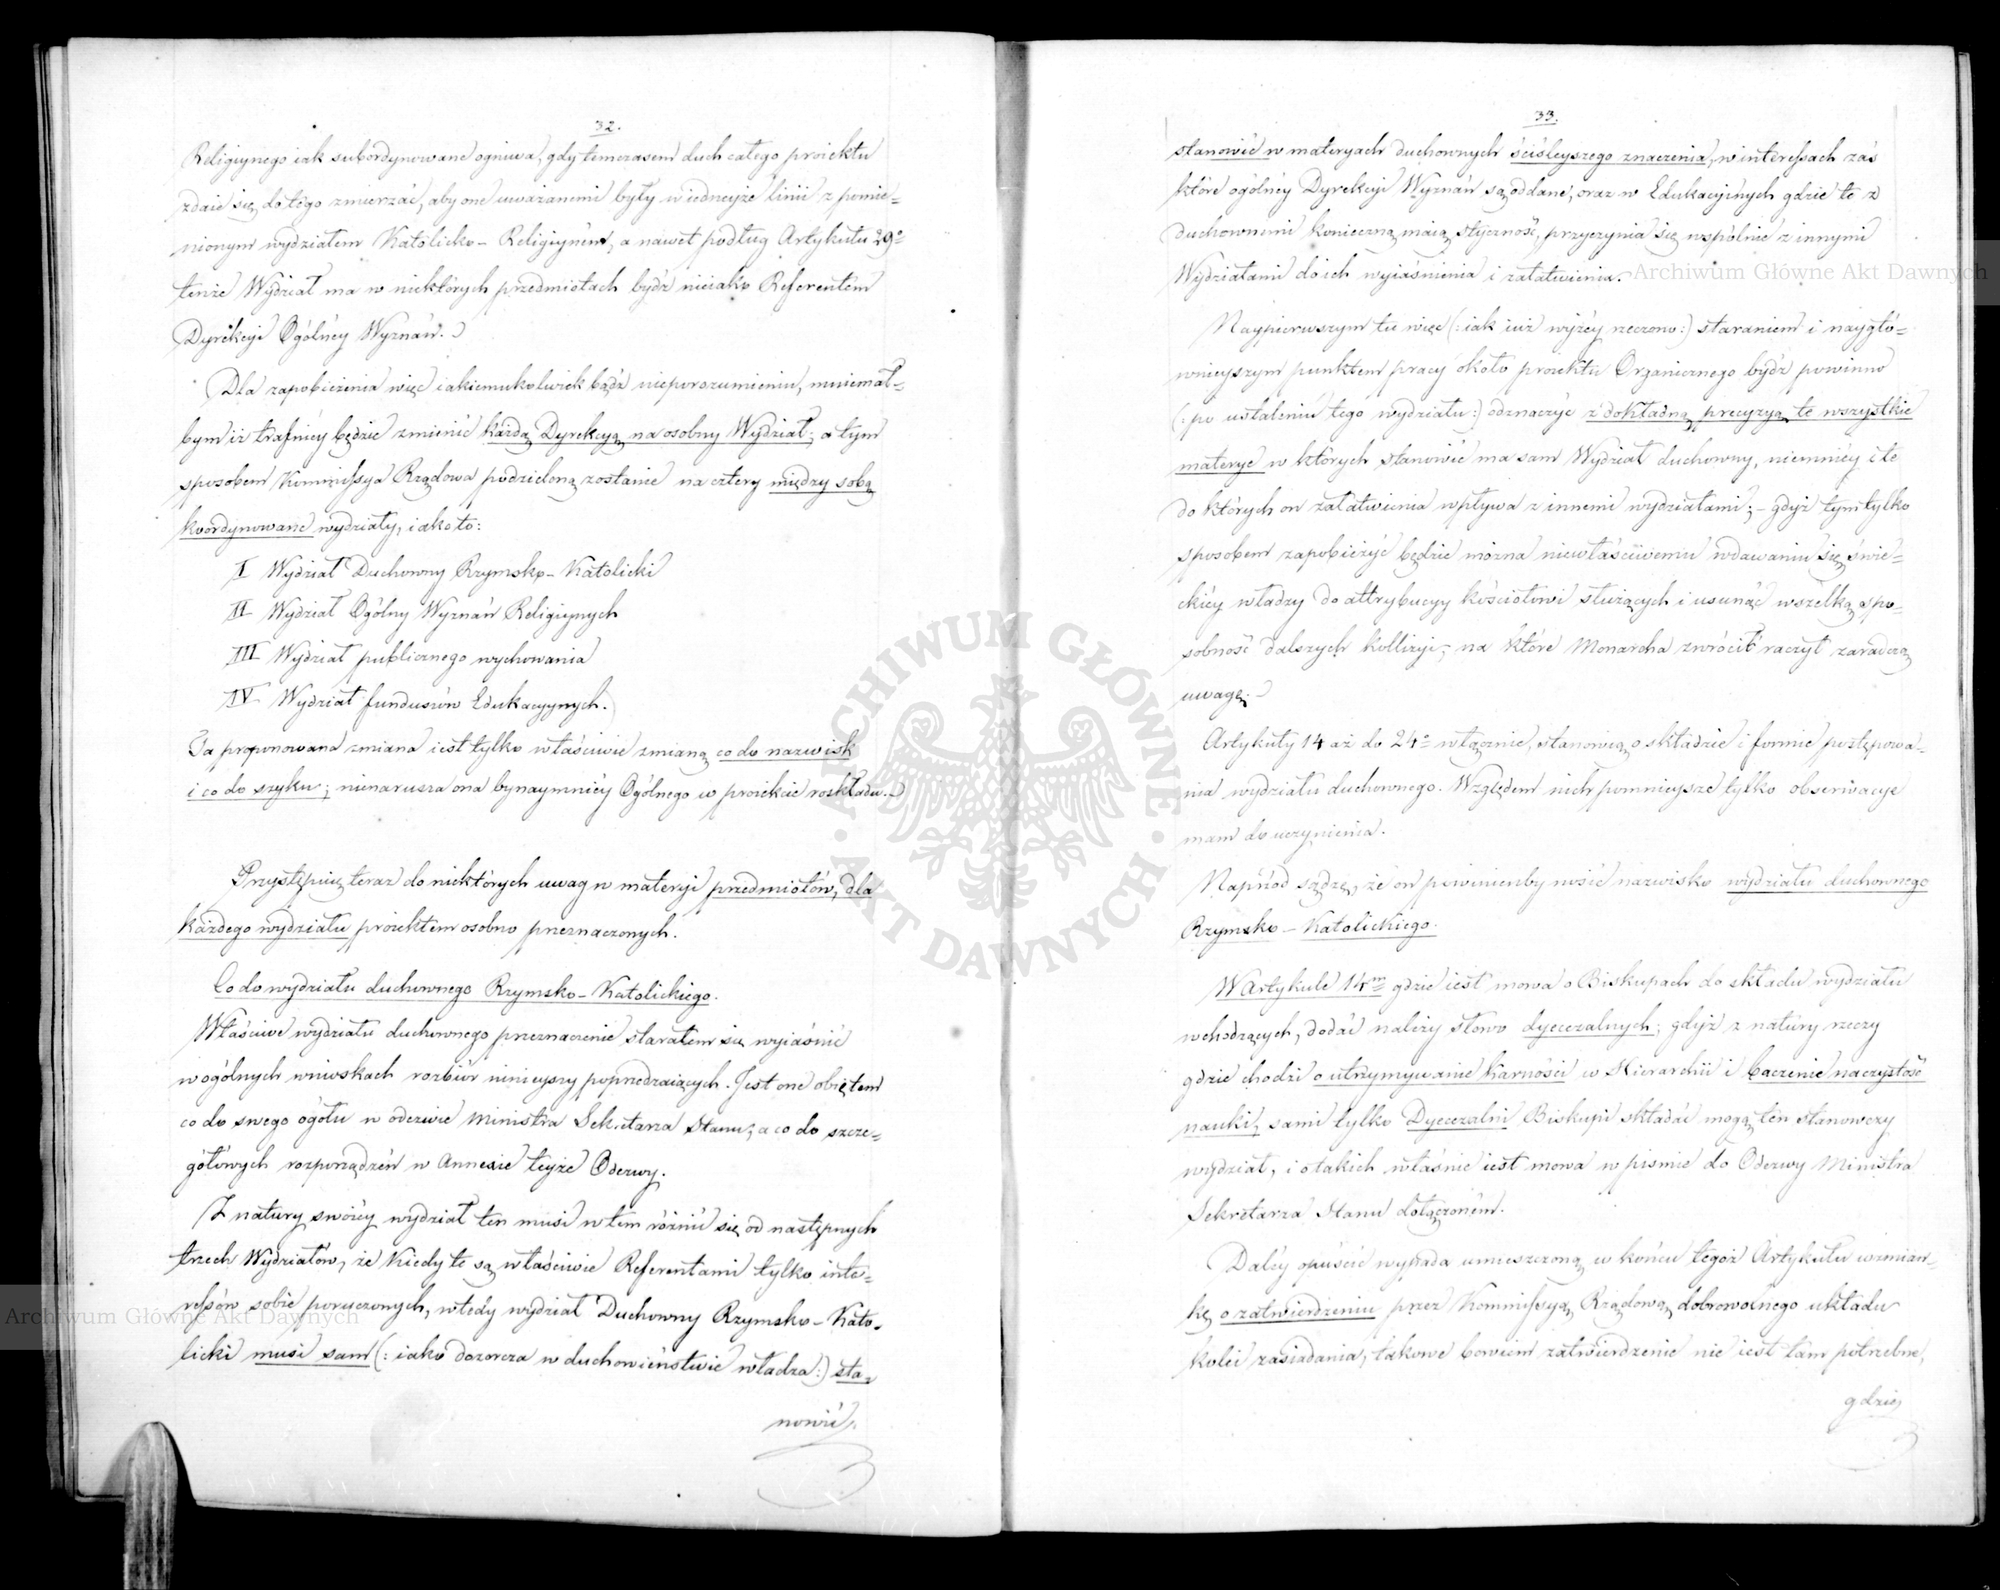 32.
Religiynego iak subordynowane ogniwa, gdy temczasem duch całego proiektu
zdaie się do tego zmierzać, aby one uważanemi były w iedneyże linii z pomie-
nionym wydziałem Katolicko-Religiynem, a nawet podług Artykułu 29º
tenże Wydział ma w niektórych przedmiotach bydź nieiako Referentem
Dyrekcyi Ogólney Wyznań.
Dla zapobieżenia więc iakiemukolwiek bądź nieporozumieniu, mniemał-
bym iż trafniey będzie zmienić każdą Dyrekcyą na osobny Wydział; a tym
sposobem Kommissya Rządowa podzieloną zostanie na cztery między sobą
koordynowane wydziały, iako to:
I Wydział Duchowny Rzymsko-Katolicki
II Wydział Ogólny Wyznań Religiynych
III Wydział publicznego wychowania
IV Wydział funduszów Edukacyynych.
Ta proponowana zmiana iest tylko właściwie zmianą co do nazwisk
i co do szyku; nienarusza ona bynaymniey Ogólnego w proiekcie rozkładu.
Przystępuię teraz do niektórych uwag w materyi przedmiotów, dla
każdego wydziału proiektem osobno przeznaczonych.
Co do wydziału duchownego Rzymsko-Katolickiego.
Właściwe wydziału duchownego przeznaczenie starałem się wyiaśnić
w ogólnych wnioskach rozbiór ninieyszy poprzedzaiących. Jest one obiętem
co do swego ogółu w odezwie Ministra Sekretarza Stanu, a co do szcze-
gółowych rozporządzeń w Annexie teyże Odezwy.
Z natury swoiey wydział ten musi w tem różnić się od następnych
trzech Wydziałów, że kiedy te są właściwie Referentami tylko inte-
ressów sobie poruczonych, wtedy wydział Duchowny Rzymsko-Kato-
licki musi sam (: iako dozorcza w duchowieństwie władza :) sta-
nowić
33.
stanowić w materyach duchownych ściśleyszego znaczenia, w interessach zaś
które ogólney Dyrekcyi Wyznań są oddane, oraz w Edukacyinych gdzie te z
duchownemi konieczną maią styczność, przyczynia się wspólnie z innymi
Wydziałami do ich wyiaśnienia i załatwienia.
Naypierwszym tu więc (: iak iuż wyżey rzeczono :) staraniem i naygłó-
wnieyszym punktem pracy około proiektu Organicznego bydź powinno
(: po ustaleniu tego wydziału :) oznaczyć z dokładną precyzyą te wszystkie
materye w których stanowić ma sam Wydział duchowny, niemniey i te
do których on załatwienia wpływa z innemi wydziałami; - gdyż tym tylko
sposobem zapobieżyć będzie można niewłaściwemu wdawaniu się świe-
ckiey władzy do attrybucyy kościołowi służących i usunąć wszelką spo-
sobność dalszych kollizyi, na które Monarcha zwrócić raczył zaradczą
uwagę.
Artykuły 14 aż do 24º włącznie, stanowią o składzie i formie postępowa-
nia wydziału duchownego. Względem nich pomnieysze tylko obserwacye
mam do uczynienia.
Naprzód sądzę, że on powinienby nosić nazwisko wydziału duchownego
Rzymsko-Katolickiego.
W Artykule 14m gdzie iest mowa o Biskupach do składu wydziału
wchodzących, dodać należy słowo dyecezalnych; gdyż z natury rzeczy
gdzie chodzi o utrzymywanie karności w Hierarchii i baczenie na czystość
nauki, sami tylko Dyecezalni Biskupi składać mogą ten stanowczy
wydział, i o takich właśnie iest mowa w pismie do Odezwy Ministra
Sekretarza Stanu dołączonem.
Daley opuścić wypada umieszczoną w końcu tegoż Artykułu wzmian-
kę o zatwierdzeniu przez Kommissyą Rządową dobrowolnego układu
kolei zasiadania, takowe bowiem zatwierdzenie nie iest tam potrzebne,
gdzie
Archiwum Główne Akt Dawnych
Archiwum Główne Akt Dawnych
ARCHIWUM GŁÓWNE · AKT DAWNYCH ·